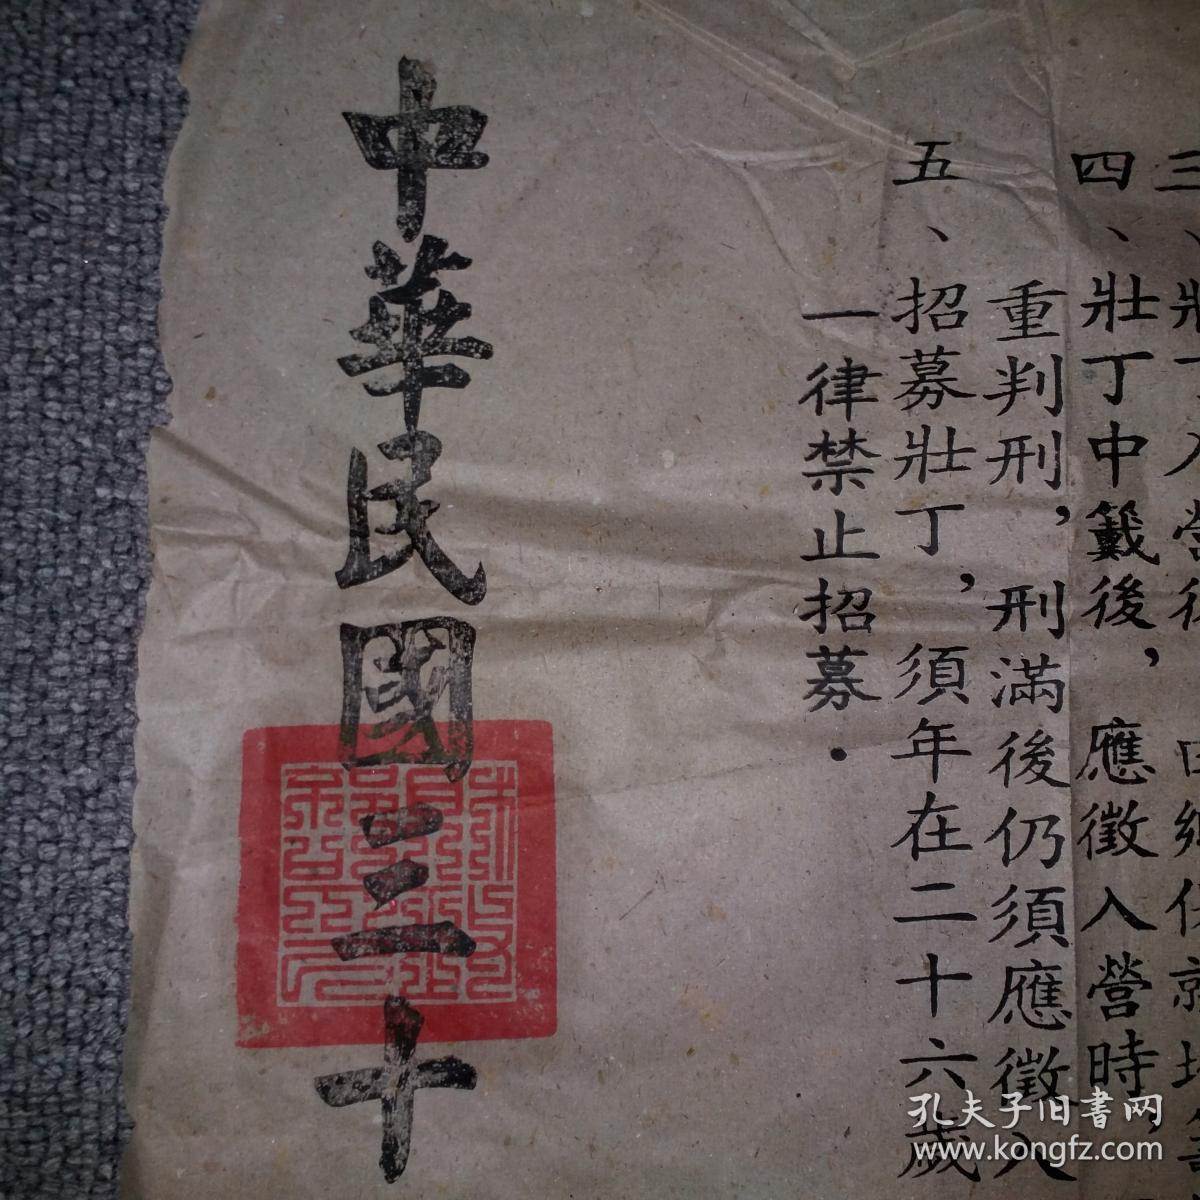 四、壯丁中籤後，應徵入營時，
重判刑，刑滿後仍須應徵入
五、招募壯丁，須年在二十六歲
一律禁止招募．
中華民國三十
孔夫子旧書网
www.kongfz.com